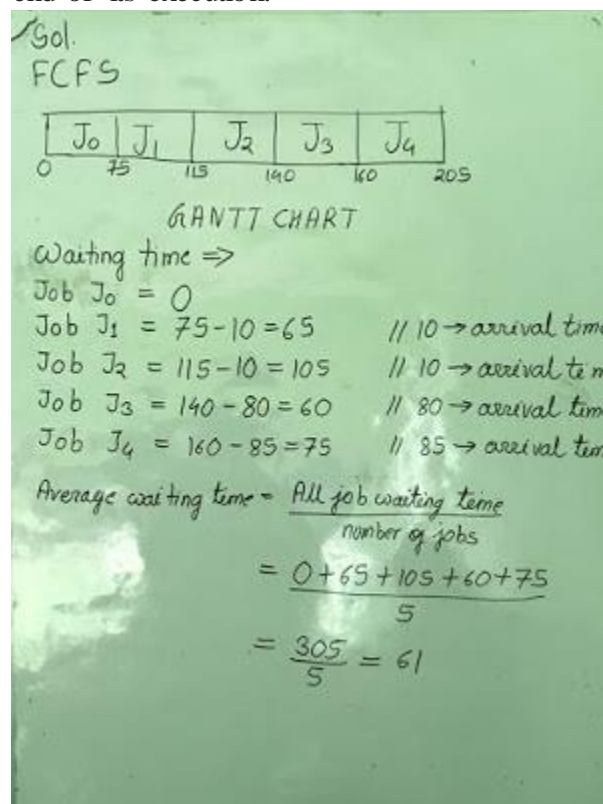 Sol.
FCFS
J0 J1 J2 J3 J4
0 75 115 140 160 205
GANTT CHART
Waiting time =>
Job J0 = 0
Job J1 = 75-10 = 65 // 10 → arrival time
Job J2 = 115-10 = 105 // 10 → arrival tem
Job J3 = 140 - 80 = 60 // 80 → arrival time
Job J4 = 160 - 85 = 75 // 85 → arrival tem
Average waiting teme = All job waiting teme
number of jobs
= 0+65+105+60+75
5
= 305 = 61
5